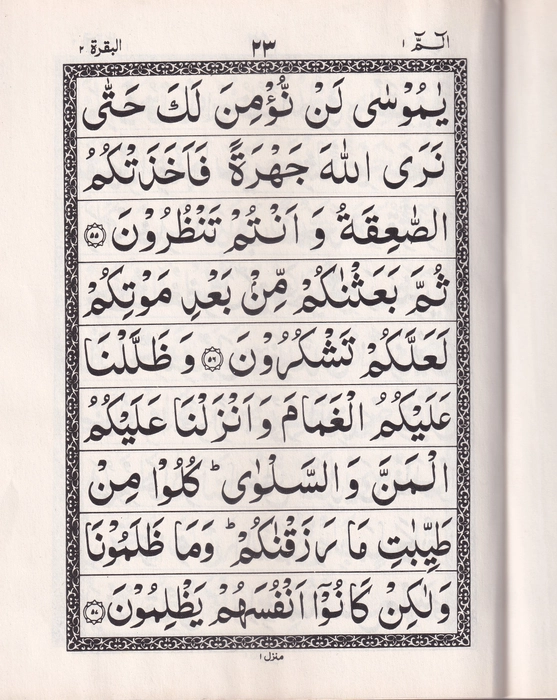 الٓمّٓ ١ ٢٣ البقرة ٢
يٰمُوْسٰى لَنْ نُّؤْمِنَ لَكَ حَتّٰى
نَرَى اللّٰهَ جَهْرَةً فَاَخَذَتْكُمُ
الصّٰعِقَةُ وَ اَنْتُمْ تَنْظُرُوْنَ ۝٥٥
ثُمَّ بَعَثْنٰكُمْ مِّنْۢ بَعْدِ مَوْتِكُمْ
لَعَلَّكُمْ تَشْكُرُوْنَ ۝٥٦ وَ ظَلَّلْنَا
عَلَيْكُمُ الْغَمَامَ وَاَنْزَلْنَا عَلَيْكُمُ
الْمَنَّ وَالسَّلْوٰى ؕ كُلُوْا مِنْ
طَيِّبٰتِ مَا رَزَقْنٰكُمْ ؕ وَمَا ظَلَمُوْنَا
وَلٰكِنْ كَانُوْۤا اَنْفُسَهُمْ يَظْلِمُوْنَ ۝٥٧
منزل ١